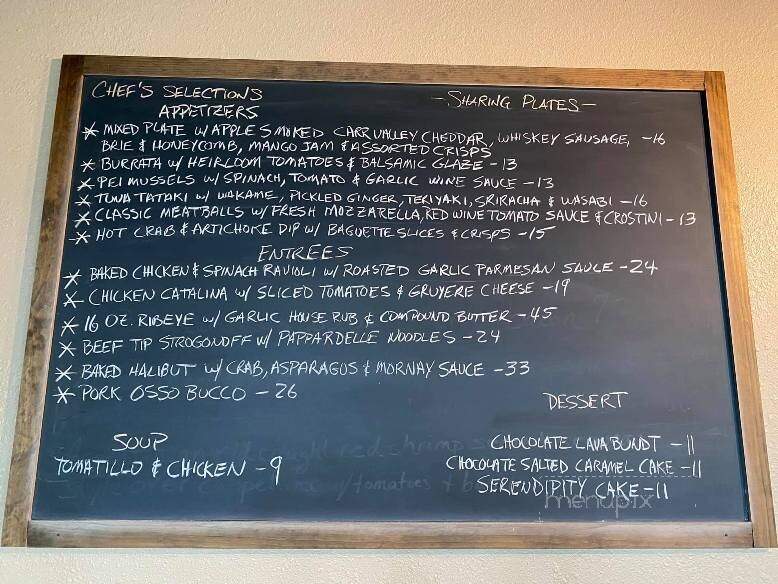 CHEF'S SELECTIONS
APPETIZERS
-SHARING PLATES-
* MIXED PLATE W/ APPLE SMOKED CARR VALLEY CHEDDAR, WHISKEY SAUSAGE, -16
BRIE & HONEYCOMB, MANGO JAM & ASSORTED CRISPS
* BURRATA W/ HEIRLOOM TOMATOES & BALSAMIC GLAZE - 13
* PEI MUSSELS W/ SPINACH, TOMATO & GARLIC WINE SAUCE - 13
* TUNA TATAKI W/ WAKAME, PICKLED GINGER, TERIYAKI, SRIRACHA & WASABI - 16
* CLASSIC MEATBALLS W/ FRESH MOZZARELLA, RED WINE TOMATO SAUCE & CROSTINI - 13
* HOT CRAB & ARTICHOKE DIP W/ BAGUETTE SLICES & CRISPS - 15
ENTREES
* BAKED CHICKEN & SPINACH RAVIOLI W/ ROASTED GARLIC PARMESAN SAUCE - 24
* CHICKEN CATALINA W/ SLICED TOMATOES & GRUYERE CHEESE - 19
* 16 OZ. RIBEYE W/ GARLIC HOUSE RUB & COMPOUND BUTTER - 45
* BEEF TIP STROGONOFF W/ PAPPARDELLE NOODLES - 24
* BAKED HALIBUT W/ CRAB, ASPARAGUS & MORNAY SAUCE - 33
* PORK OSSO BUCCO - 26
SOUP
TOMATILLO & CHICKEN - 9
DESSERT
CHOCOLATE LAVA BUNDT - 11
CHOCOLATE SALTED CARAMEL CAKE - 11
SERENDIPITY CAKE - 11
menupix